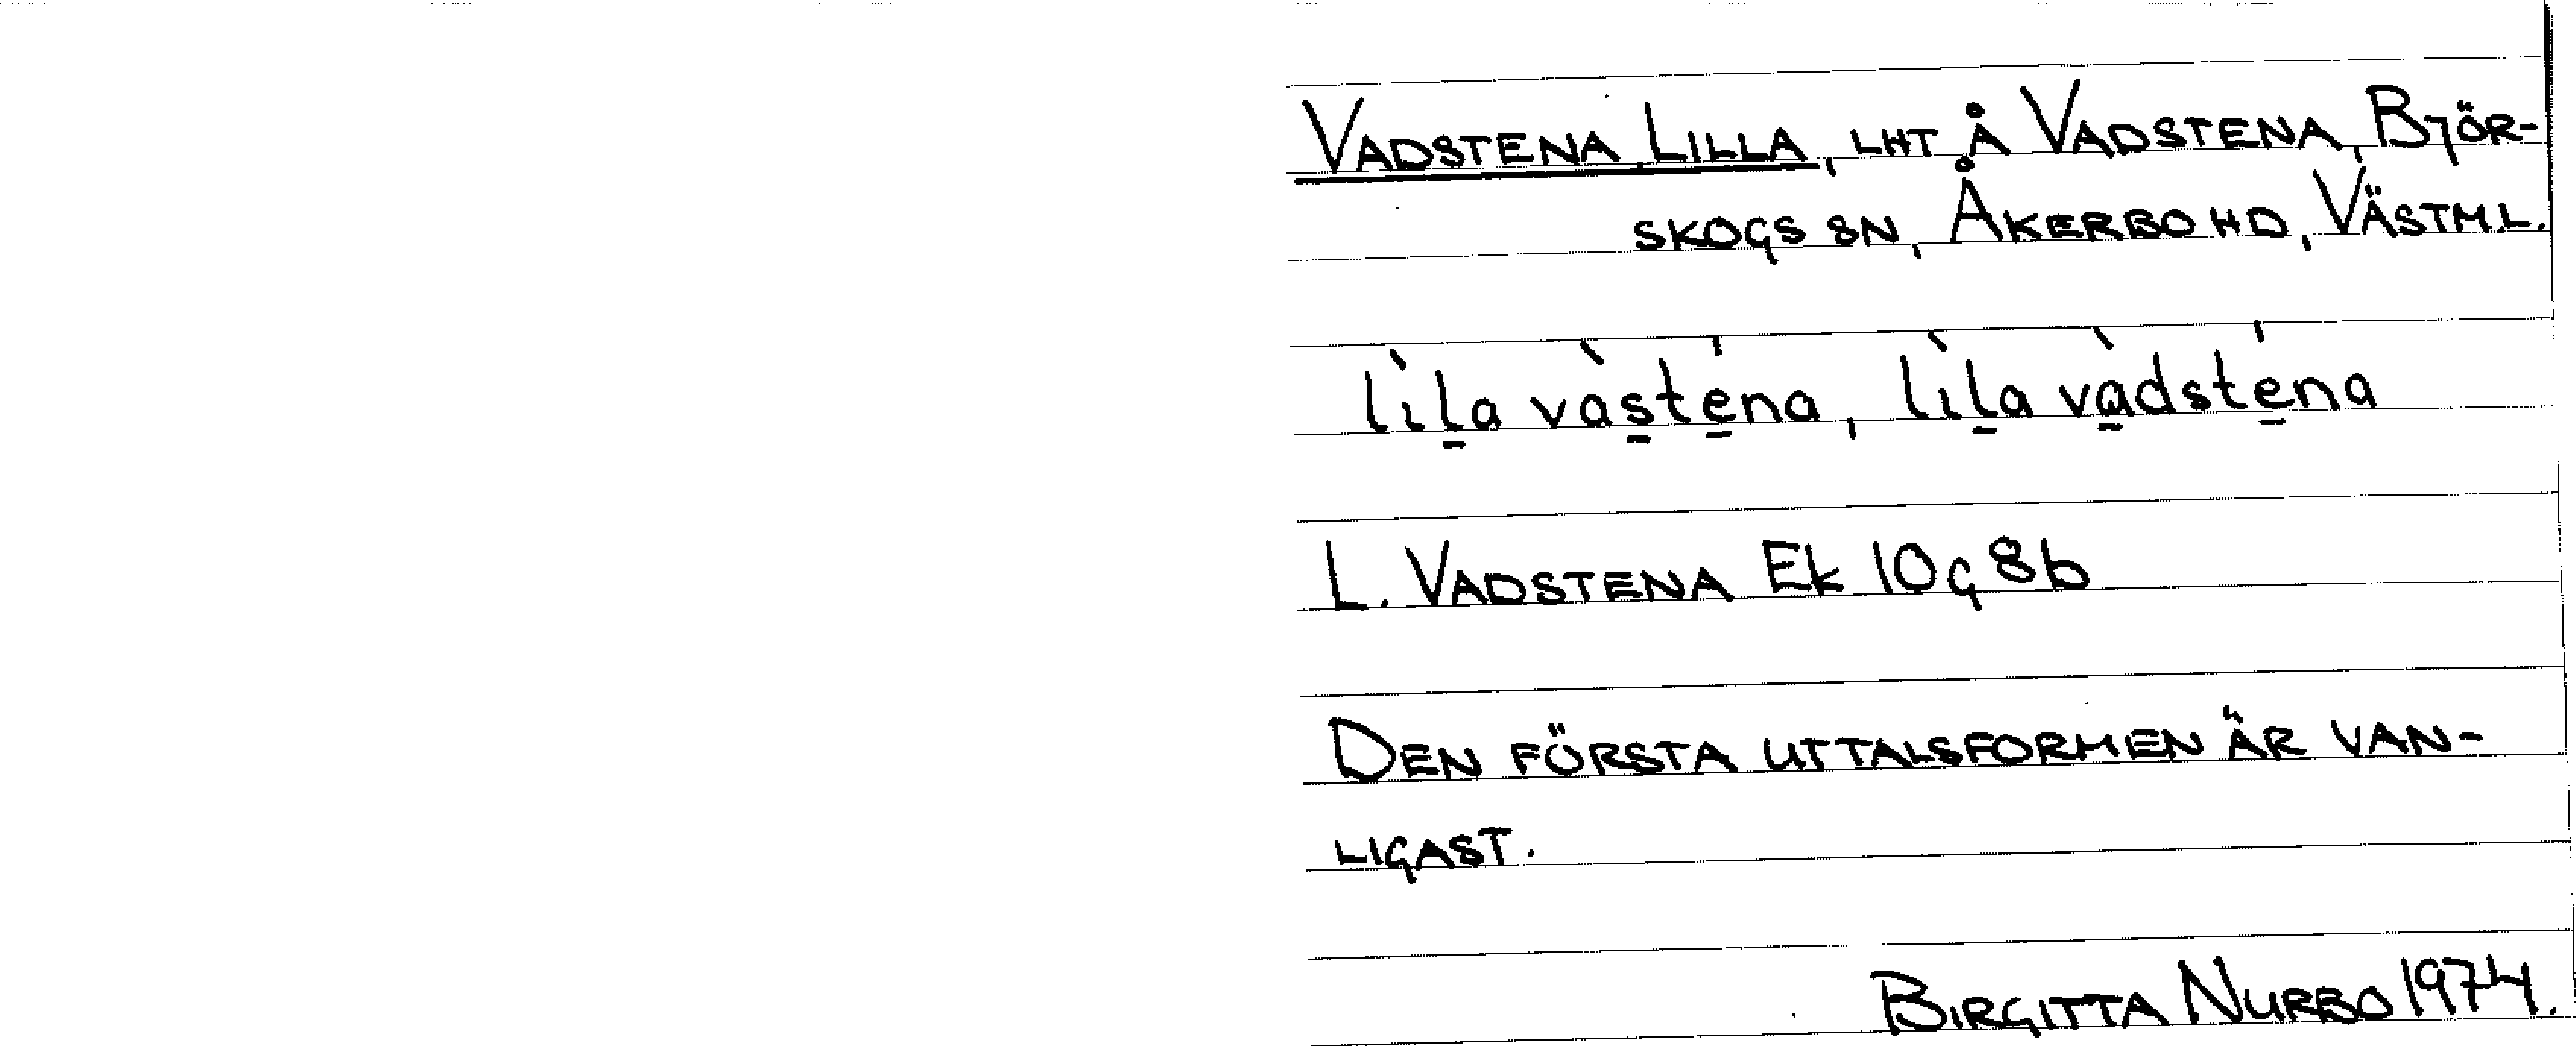 VADSTENA LILLA, LHT Å VADSTENA, BJÖR-
SKOGS SN, ÅKERBO HD, VÄSTML.
lìl̠a vàs̠té̠na, lìl̠a và̠dsté̠na
L. VADSTENA Ek 10G8b
DEN FÖRSTA UTTALSFORMEN ÄR VAN-
LIGAST.
BIRGITTA NURBO 1974.